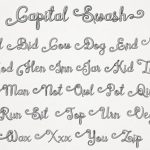 Capital Swash
Bid Cow Dog End
God Hen Inn Jar Kid
Nod Out Pot
Run Sit Top Urn
Wax Xxx You Zip